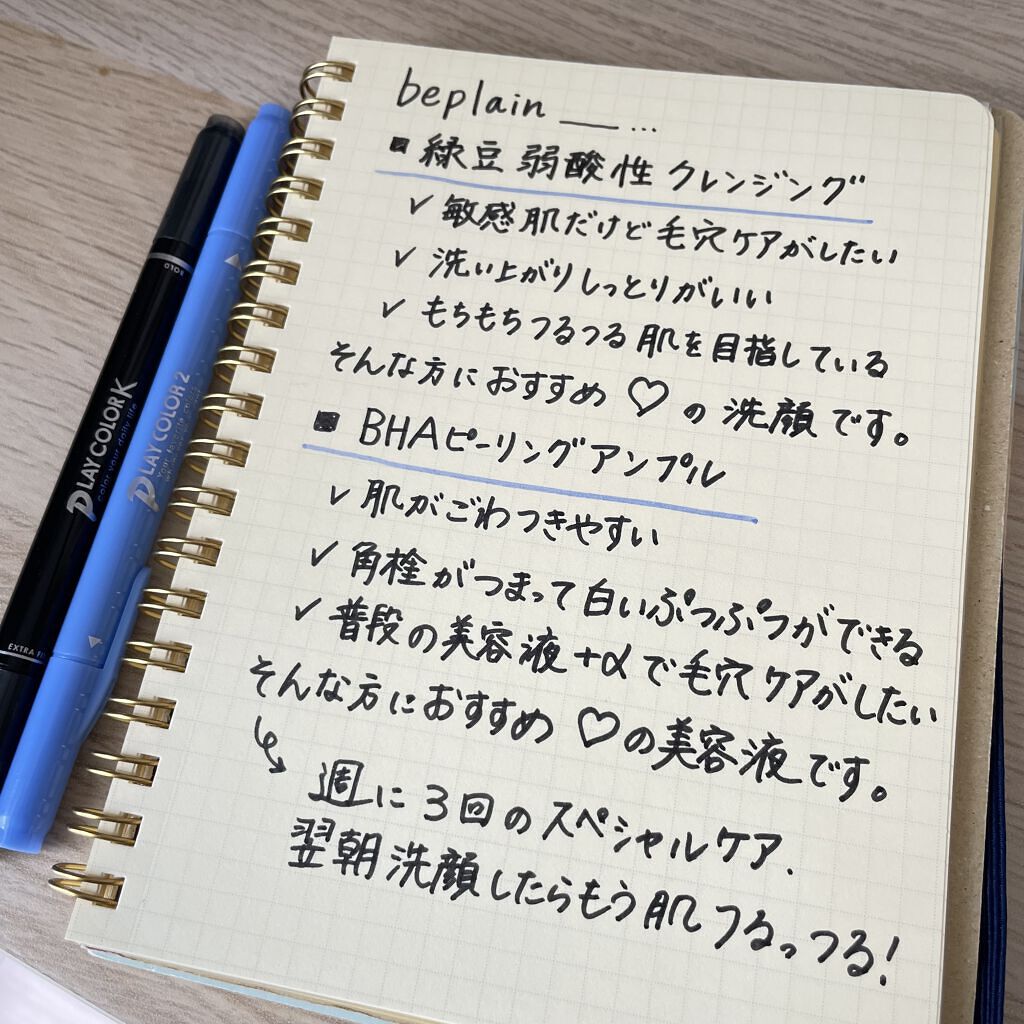 beplain __ …
■ 緑豆 弱酸性 クレンジング
✓ 敏感肌だけど毛穴ケアがしたい
✓ 洗い上がりしっとりがいい
✓ もちもちつるつる肌を目指している
そんな方におすすめ ♡ の洗顔です。
■ BHAピーリングアンプル
✓ 肌がごわつきやすい
✓ 角栓がつまって白いぷつぷつができる
✓ 普段の美容液+αで毛穴ケアがしたい
そんな方におすすめ ♡の美容液です。
↪ 週に3回のスペシャルケア.
翌朝洗顔したらもう肌つるっつる!
PLAY COLOR K
color your daily life
0101
EXTRA
PLAY COLOR 2